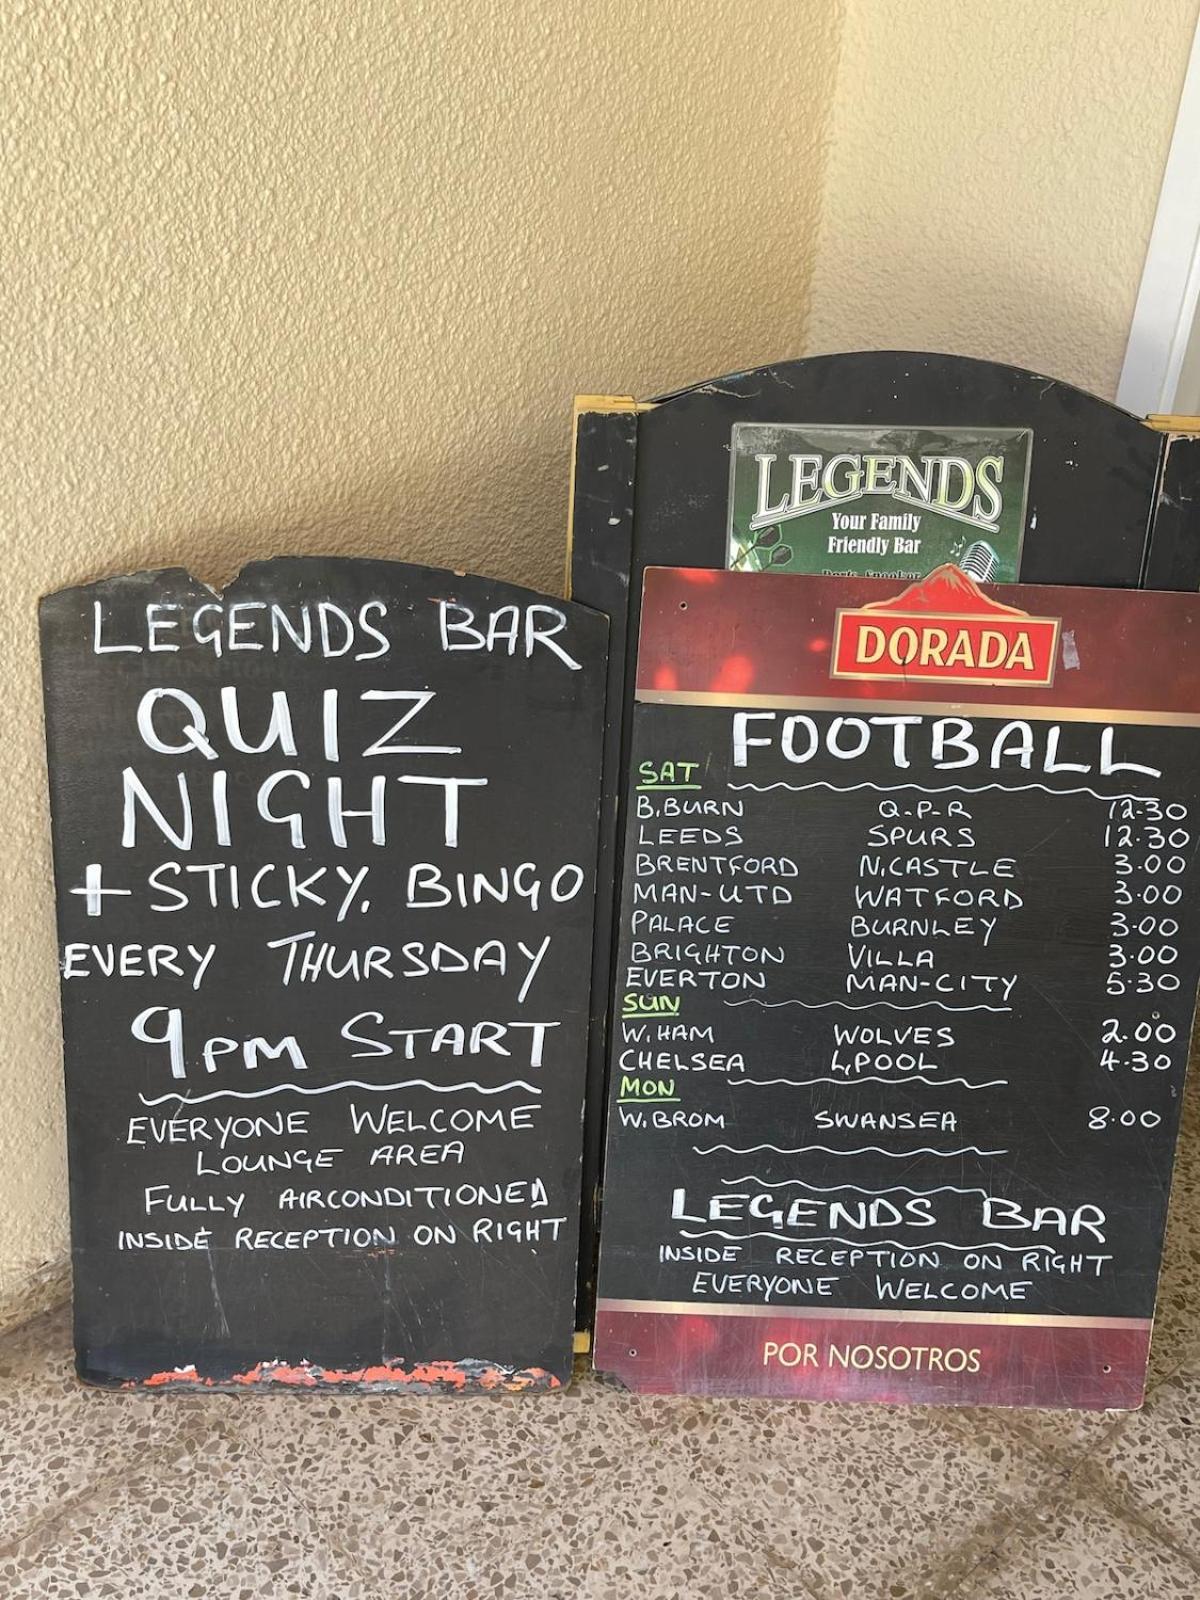 LEGENDS BAR
QUIZ
NIGHT
+ STICKY. BINGO
EVERY THURSDAY
9PM START
EVERYONE WELCOME
LOUNGE AREA
FULLY AIRCONDITIONED
INSIDE RECEPTION ON RIGHT
LEGENDS
Your Family
Friendly Bar
DORADA
FOOTBALL
SAT
B.BURN Q.P.R 12.30
LEEDS SPURS 12.30
BRENTFORD N.CASTLE 3.00
MAN-UTD WATFORD 3.00
PALACE BURNLEY 3.00
BRIGHTON VILLA 3.00
EVERTON MAN-CITY 5.30
SUN
W.HAM WOLVES 2.00
CHELSEA L,POOL 4.30
MON
W.BROM SWANSEA 8.00
LEGENDS BAR
INSIDE RECEPTION ON RIGHT
EVERYONE WELCOME
POR NOSOTROS